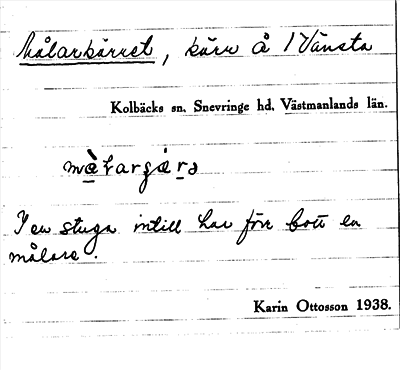 Målarkärret, kärr å Vänsta
Kolbäcks sn. Snevringe hd. Västmanlands län.
I en stuga intill har förr bott en
målare.
Karin Ottosson 1938.